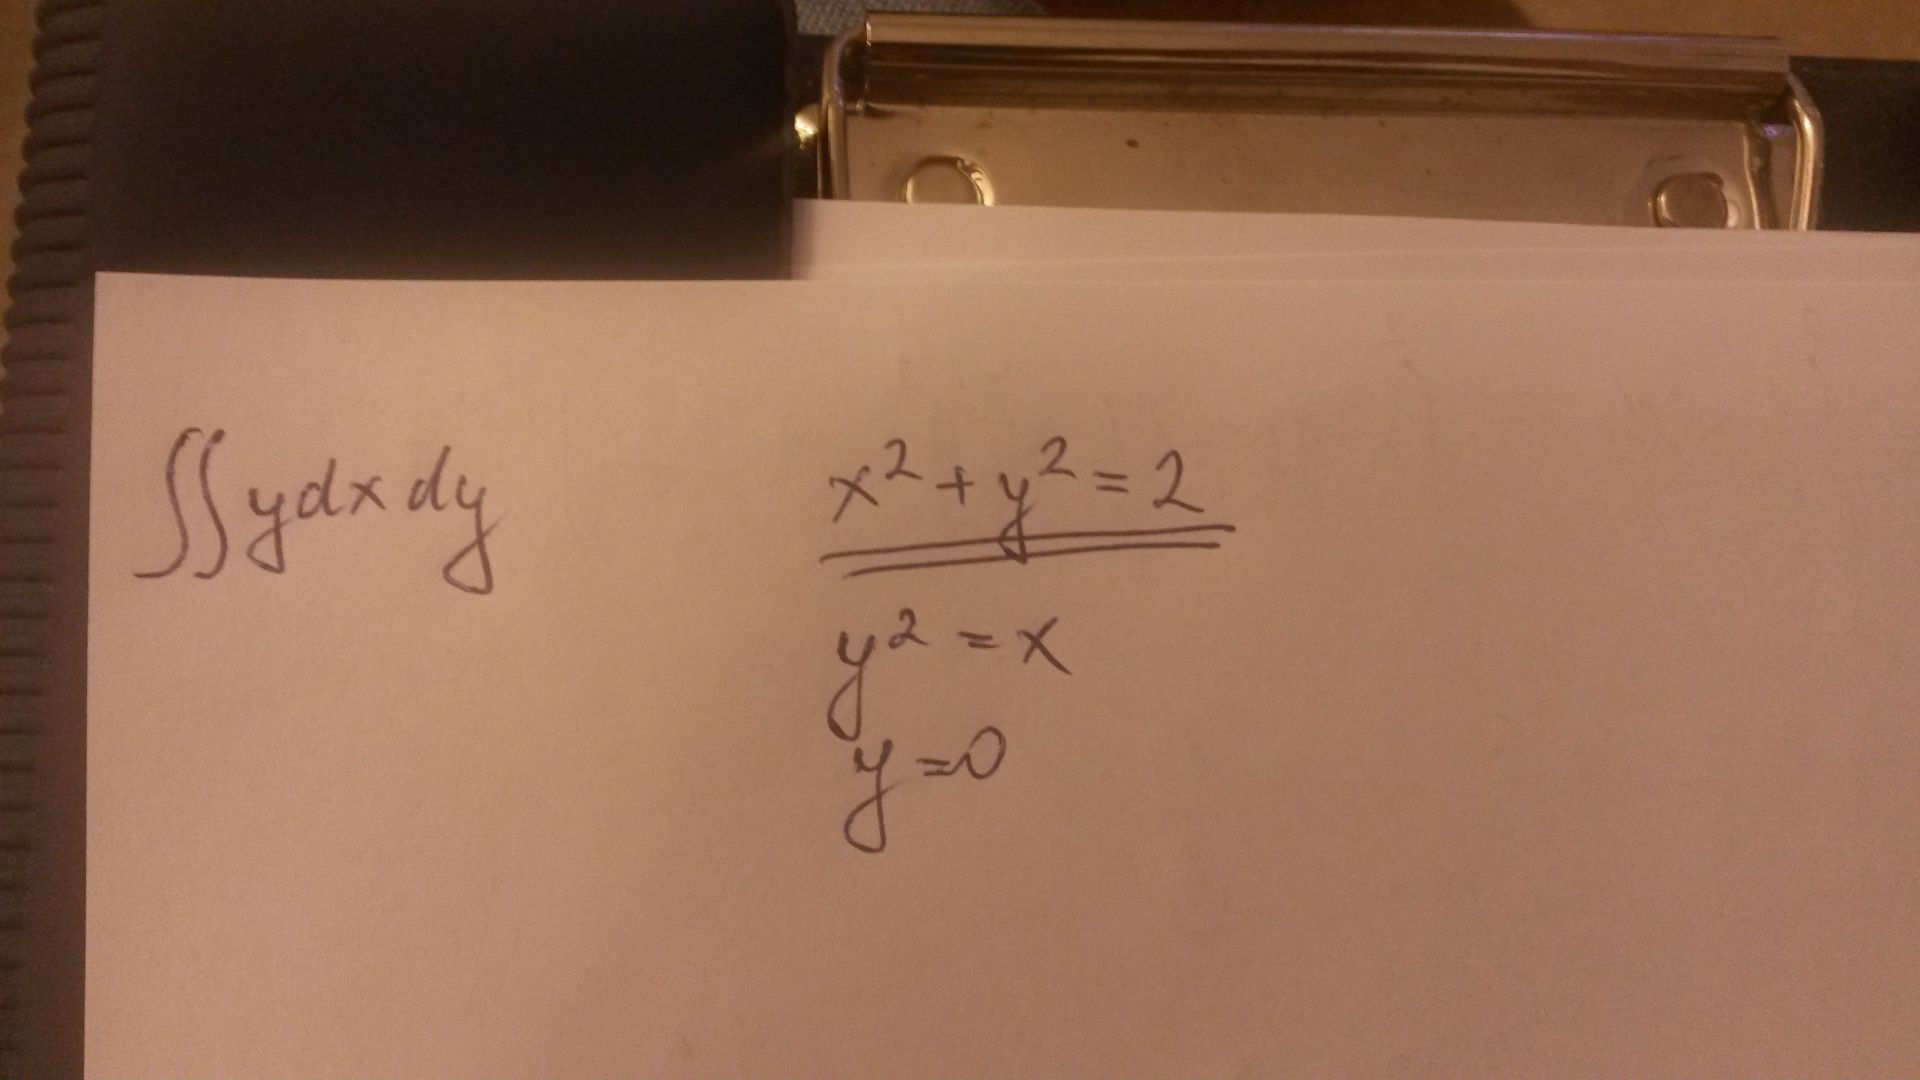 ∬ y dx dy
x² + y² = 2
y² = x
y = 0